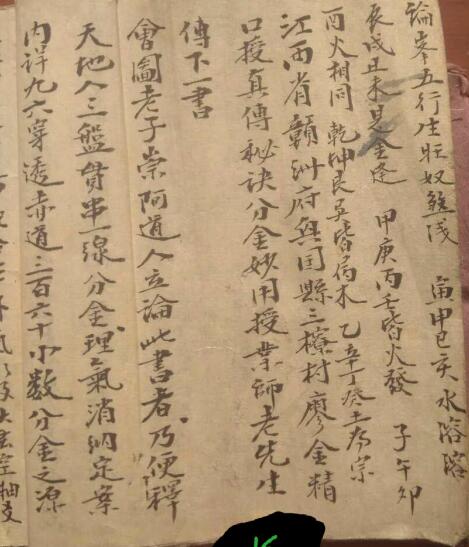 論峯五行生旺奴煞淺 寅甲巳亥水溶溶
辰戌丑未是金逢 甲庚丙壬皆火發 子午卯
酉火相同 乾坤艮巽皆為木 乙辛丁癸土為宗
江西省贛州府興国縣三檫村廖金精
口授真傳秘訣分金妙用授業師老先生
傳下一書
會圖老子崇阿道人立論此書者乃便釋
天地人三盤貫串一線分金理氣消納定案
內詳九六穿透赤道三百六十小數分金之源